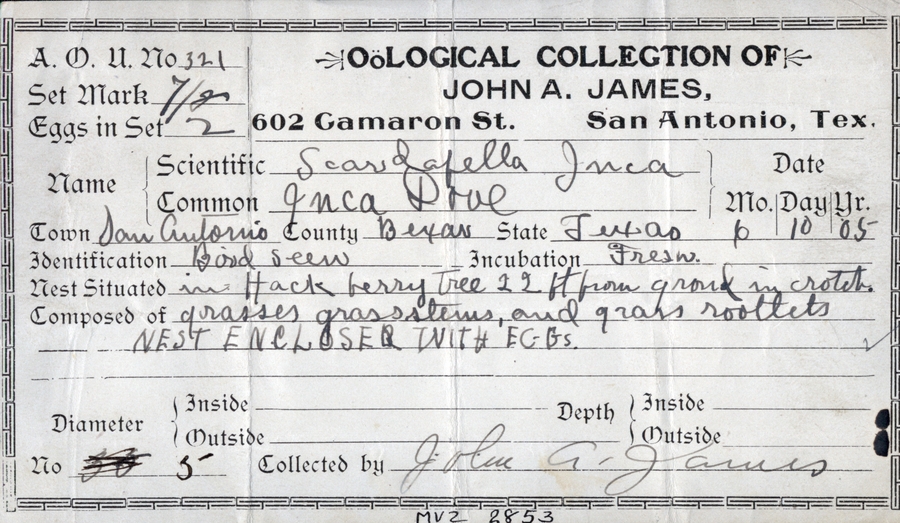 A. O. U. No 321
OöLOGICAL COLLECTION OF
JOHN A. JAMES,
Set Mark 7/2
Eggs in Set 2
602 Camaron St. San Antonio, Tex.
Name
Scientific Scardafella Inca
Common Inca Dove
Date
Mo. Day Yr.
Town San Antonio County Bexar State Texas 6 10 05
Identification Bird seen Incubation Fresh.
Nest Situated in Hack berry tree 22 ft from ground in crotch.
Composed of grasses grassstems, and grass rootlets
NEST ENCLOSED WITH EGGs.
Diameter
Inside
Outside
Depth
Inside
Outside
No 5 Collected by John A. James
MVZ 2853